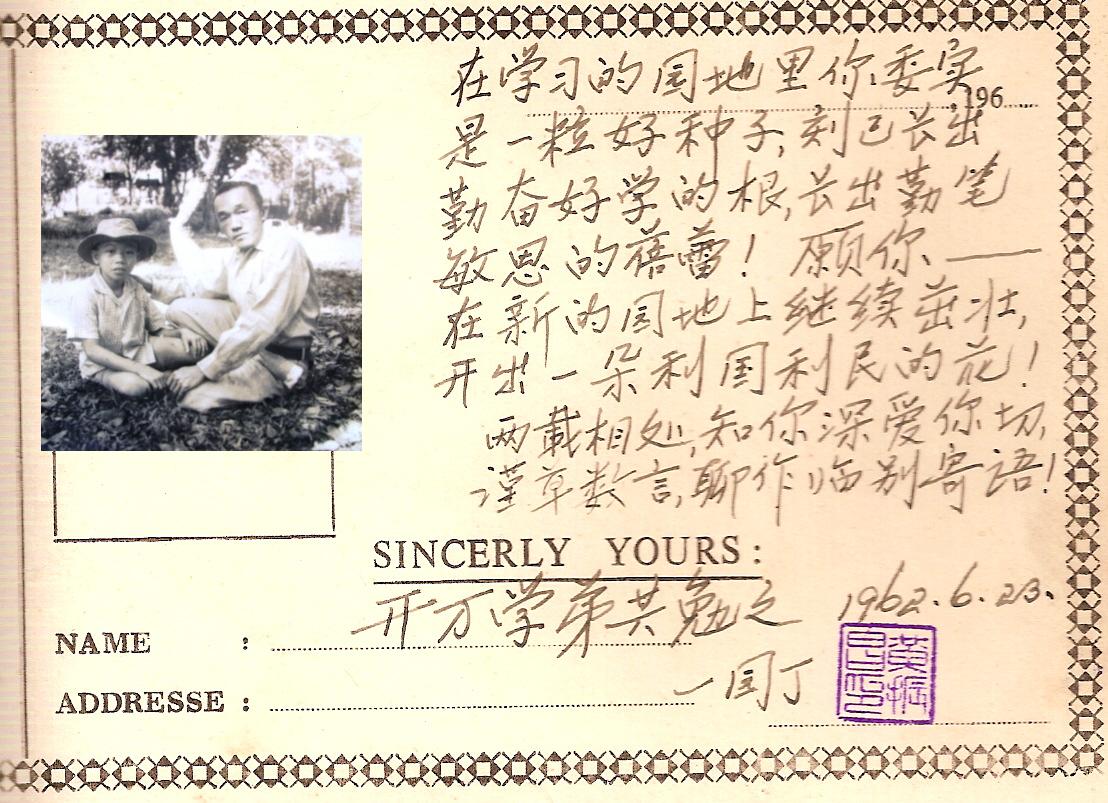 在学习的园地里你委实
196
是一粒好种子,刻已长出
勤奋好学的根,长出勤笔
敏思的蓓蕾!愿你——
在新的园地上继续茁壮,
开出一朵利国利民的花!
两載相处,知你深爱你切,
谨草数言,聊作临别寄语!
SINCERLY YOURS:
开万学弟共勉之 1962.6.23.
NAME :
一园丁
ADDRESSE :